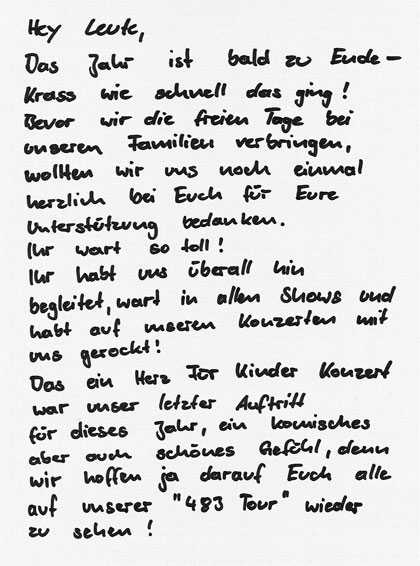 Hey Leute,
Das Jahr ist bald zu Ende –
Krass wie schnell das ging!
Bevor wir die freien Tage bei
unseren Familien verbringen,
wollten wir uns noch einmal
herzlich bei Euch für Eure
Unterstützung bedanken.
Ihr wart so toll!
Ihr habt uns überall hin
begleitet, wart in allen Shows und
habt auf unseren Konzerten mit
uns gerockt!
Das ein Herz für Kinder Konzert
war unser letzter Auftritt
für dieses Jahr, ein komisches
aber auch schönes Gefühl, denn
wir hoffen ja darauf Euch alle
auf unserer "483 Tour" wieder
zu sehen!